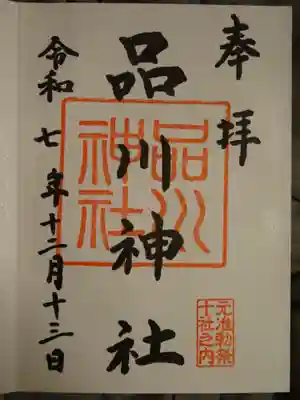 奉拝
品川神社
令和七年十二月十三日
品川神社
元准勅祭
十社之内